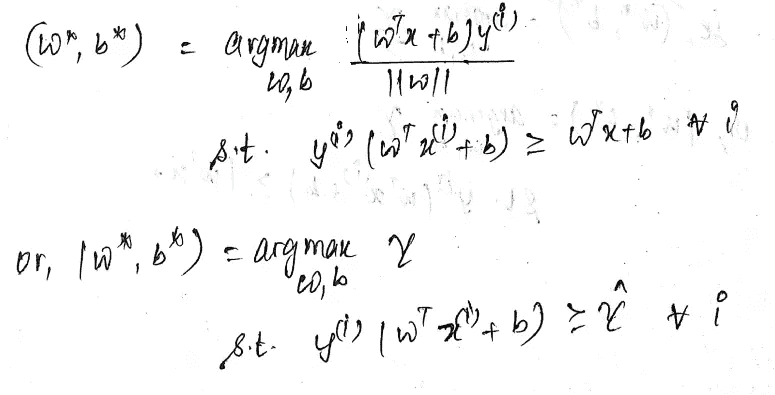 (w*, b*) = argmax (w^T x + b) y^(i) / ||w||
w, b
s.t. y^(i) (w^T x^(i) + b) ≥ w^T x + b ∀ i
or, (w*, b*) = argmax γ
w, b
s.t. y^(i) (w^T x^(i) + b) ≥ γ̂ ∀ i